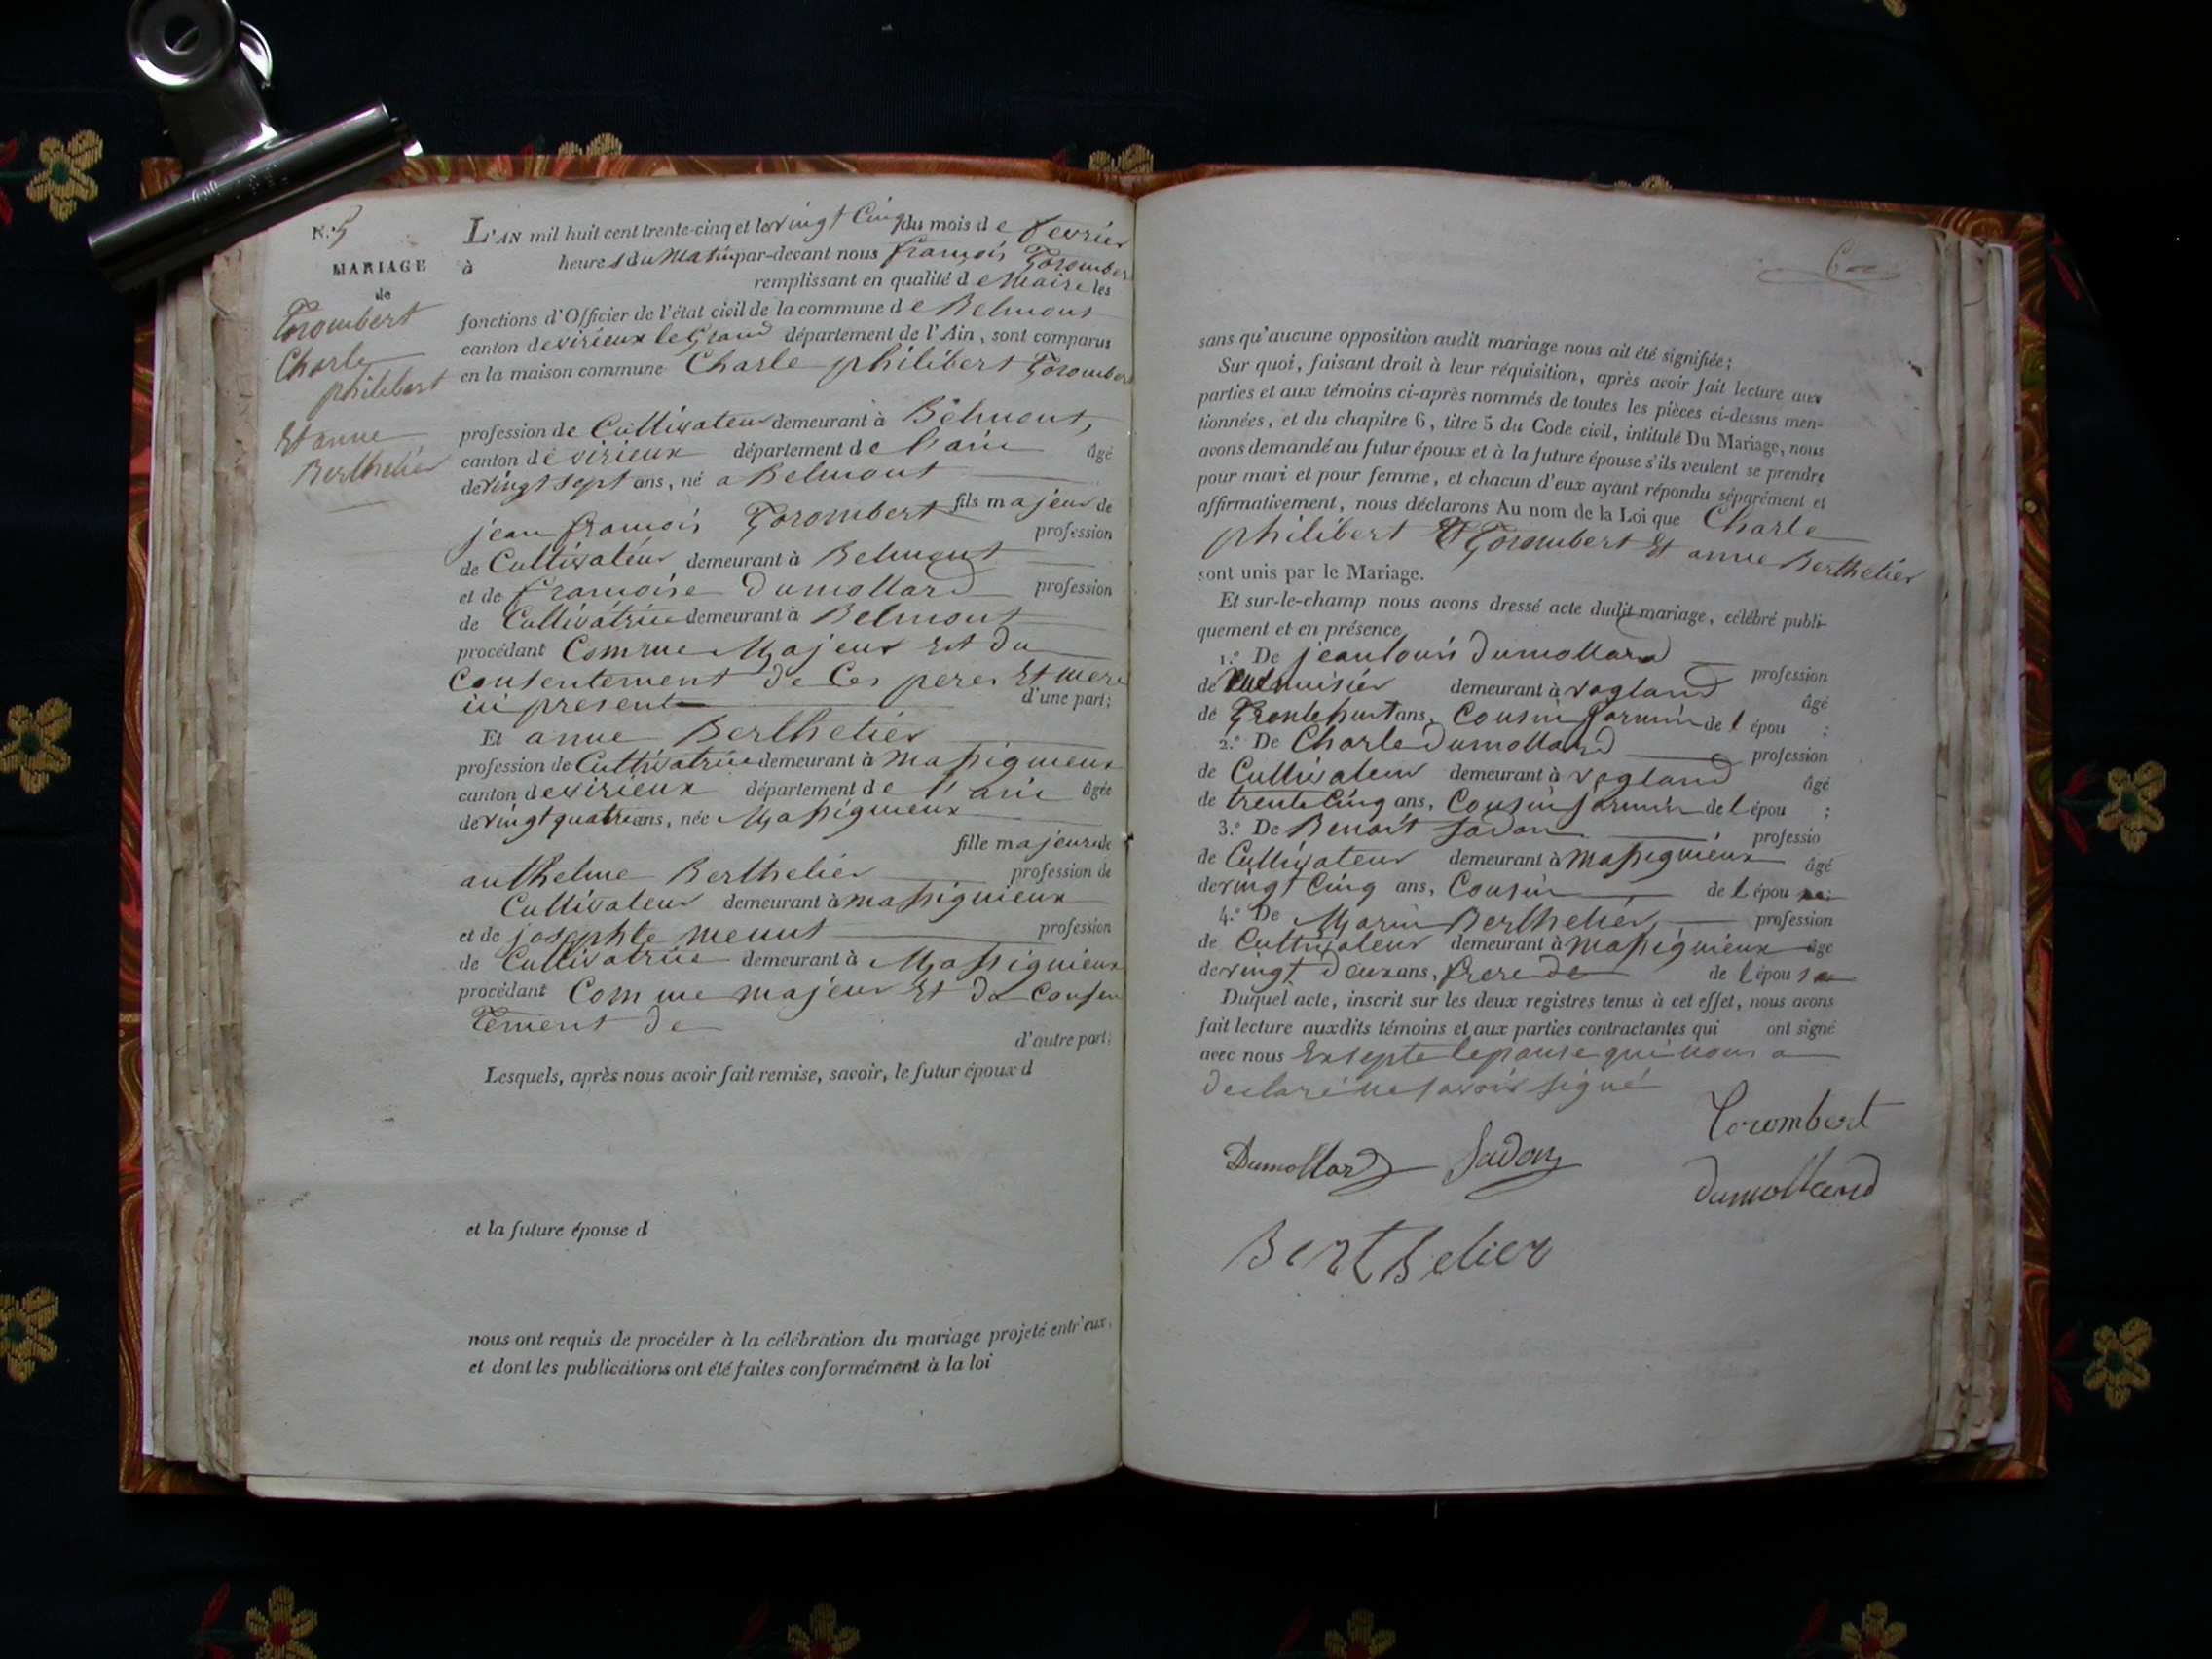 N.° 5
MARIAGE
de
Torombert
Charle
philibert
Et anne
Berthelier
L'AN mil huit cent trente-cinq et le vingt Cinq du mois de fevrier
à heures du Matin par-devant nous françois Torombert
remplissant en qualité de Maire les
fonctions d'Officier de l'état civil de la commune de Belmont
canton de virieux le Grand département de l'Ain, sont comparus
en la maison commune Charle philibert Torombert
profession de Cultivateur demeurant à Belmont,
canton de virieux département de l'ain âgé
de vingt sept ans, né a Belmont
fils majeur de
jean françois Torombert profession
de Cultivateur demeurant à Belmont
et de françoise Dumollard profession
de Cultivatrice demeurant à Belmont
procédant Comme Majeur Et du
Consentement de Ces peres Et mere
ici present d'une part;
Et anne Berthelier
profession de Cultivatrice demeurant à Massignieux
canton de virieux département de l'ain âgée
de vingt quatre ans, née Massignieux
fille majeure de
anthelme Berthelier profession de
Cultivateur demeurant à massignieux
et de josephte menut profession
de Cultivatrice demeurant à Massignieux
procédant Comme majeur Et du Consen
tement de
d'autre part;
Lesquels, après nous avoir fait remise, savoir, le futur époux d
et la future épouse d
nous ont requis de procéder à la célébration du mariage projeté entr'eux,
et dont les publications ont été faites conformément à la loi
sans qu'aucune opposition audit mariage nous ait été signifiée;
Sur quoi, faisant droit à leur réquisition, après avoir fait lecture aux
parties et aux témoins ci-après nommés de toutes les pièces ci-dessus men-
tionnées, et du chapitre 6, titre 5 du Code civil, intitulé Du Mariage, nous
avons demandé au futur époux et à la future épouse s'ils veulent se prendre
pour mari et pour femme, et chacun d'eux ayant répondu séparément et
affirmativement, nous déclarons Au nom de la Loi que Charle
philibert Torombert Et anne Berthelier
sont unis par le Mariage.
Et sur-le-champ nous avons dressé acte dudit mariage, célébré publi-
quement et en présence
1.° De jean louis Dumollard profession
de Menuisier demeurant à vogland âgé
de Trente huit ans, Cousin germin de l épou ;
2.° De Charle Dumollard profession
de Cultivateur demeurant à vogland âgé
de trente Cinq ans, Cousin germin de l épou ;
3.° De Benoit Jadon professio
de Cultivateur demeurant à Massignieux âgé
de vingt Cinq ans, Cousin de l épou se;
4.° De Marin Berthelier, profession
de Cultivateur demeurant à Massignieux âgé
de vingt Deux ans, frere de de l épou se
Duquel acte, inscrit sur les deux registres tenus à cet effet, nous avons
fait lecture auxdits témoins et aux parties contractantes qui ont signé
avec nous Exsepte lepouse qui nous a
declaré ne savoir signé
Torombert
Dumollard Jadon
dumollard
Berthelier